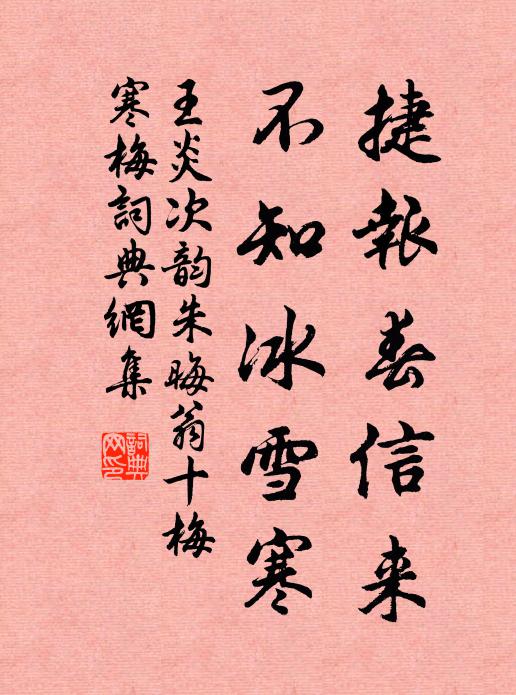 捷報春信来
不知冰雪寒
王炎次韵朱晦翁十梅
寒梅詞典網集
詞典网印